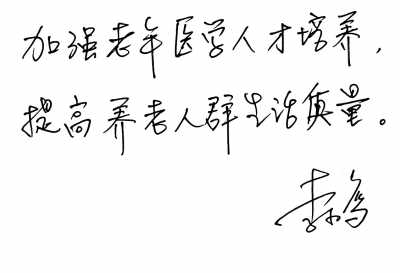 加强老年医学人才培养，
提高养老人群生活质量。